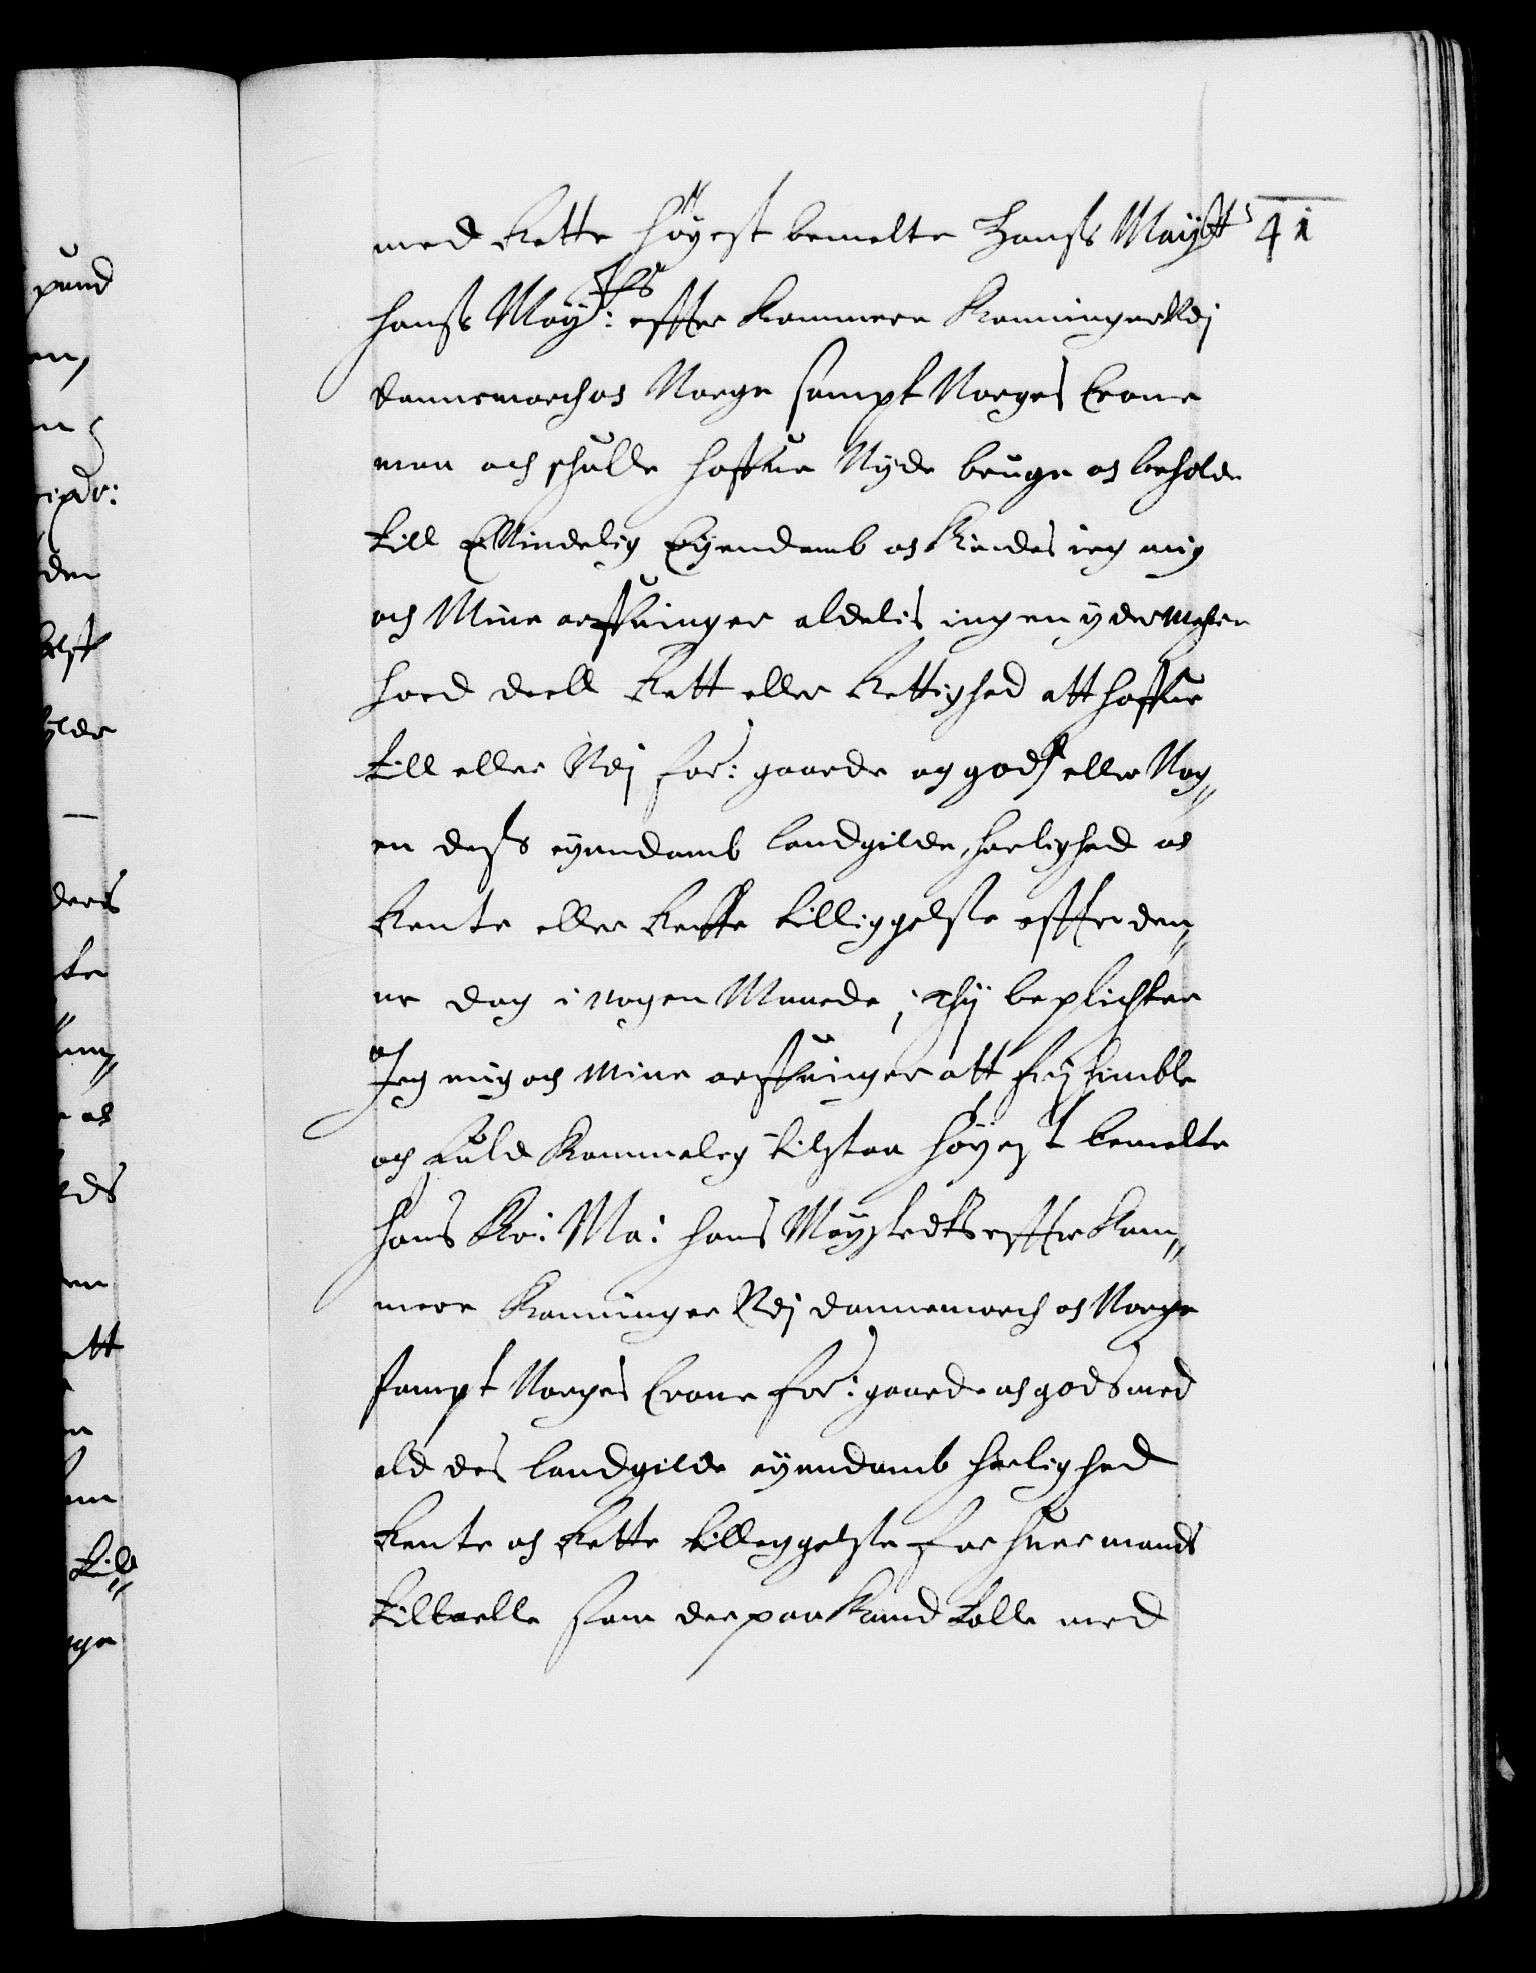 41
med Rette höyest bemelte Hanss Mayst
hanss May:ts effter kommere konninger Udj
Dannemarch os Norge sampt Norges Crone
maa och schulle haffue Nyde bruge os beholde
till Ewindelig Eyendomb os kiendes ieg mig
och Mine arffuinger aldelis ingen ydermehre
lood deell Rett eller Rettighed att haffue
till eller Udj for: gaarde og gods eller Nog„
en dess eyendomb landgilde, herlighed os
Rente eller Rette tilliggelsse effter den„
ne dag i nogen Maade; Thj beplichter
os
Jeg mig och Mine arffuinger att frj himble
och fuldkommelig tilstaa höyest bemelte
Hans Ko: Ma: hans Maystedts effterkom„
mere konninger Udj Dannemarch os Norge
sampt Norges Crone for: gaarde os gods med
ald des landgilde eyendomb herlighed
Rente os Rette tilleggelsse for huer mands
tiltaelle som der paa kand talle med
pund
en,
den
ylde
deris
te
os
ds
en
ett
till„